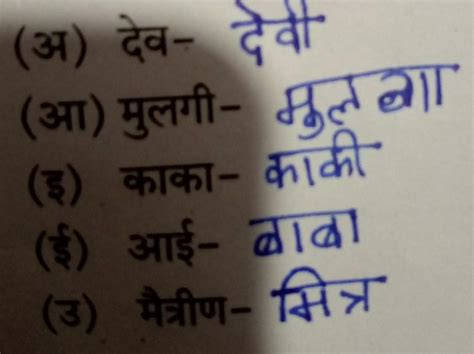 (अ) देव– देवी
(आ) मुलगी– मुलगा
(इ) काका– काकी
(ई) आई– बाबा
(उ) मैत्रीण– मित्र